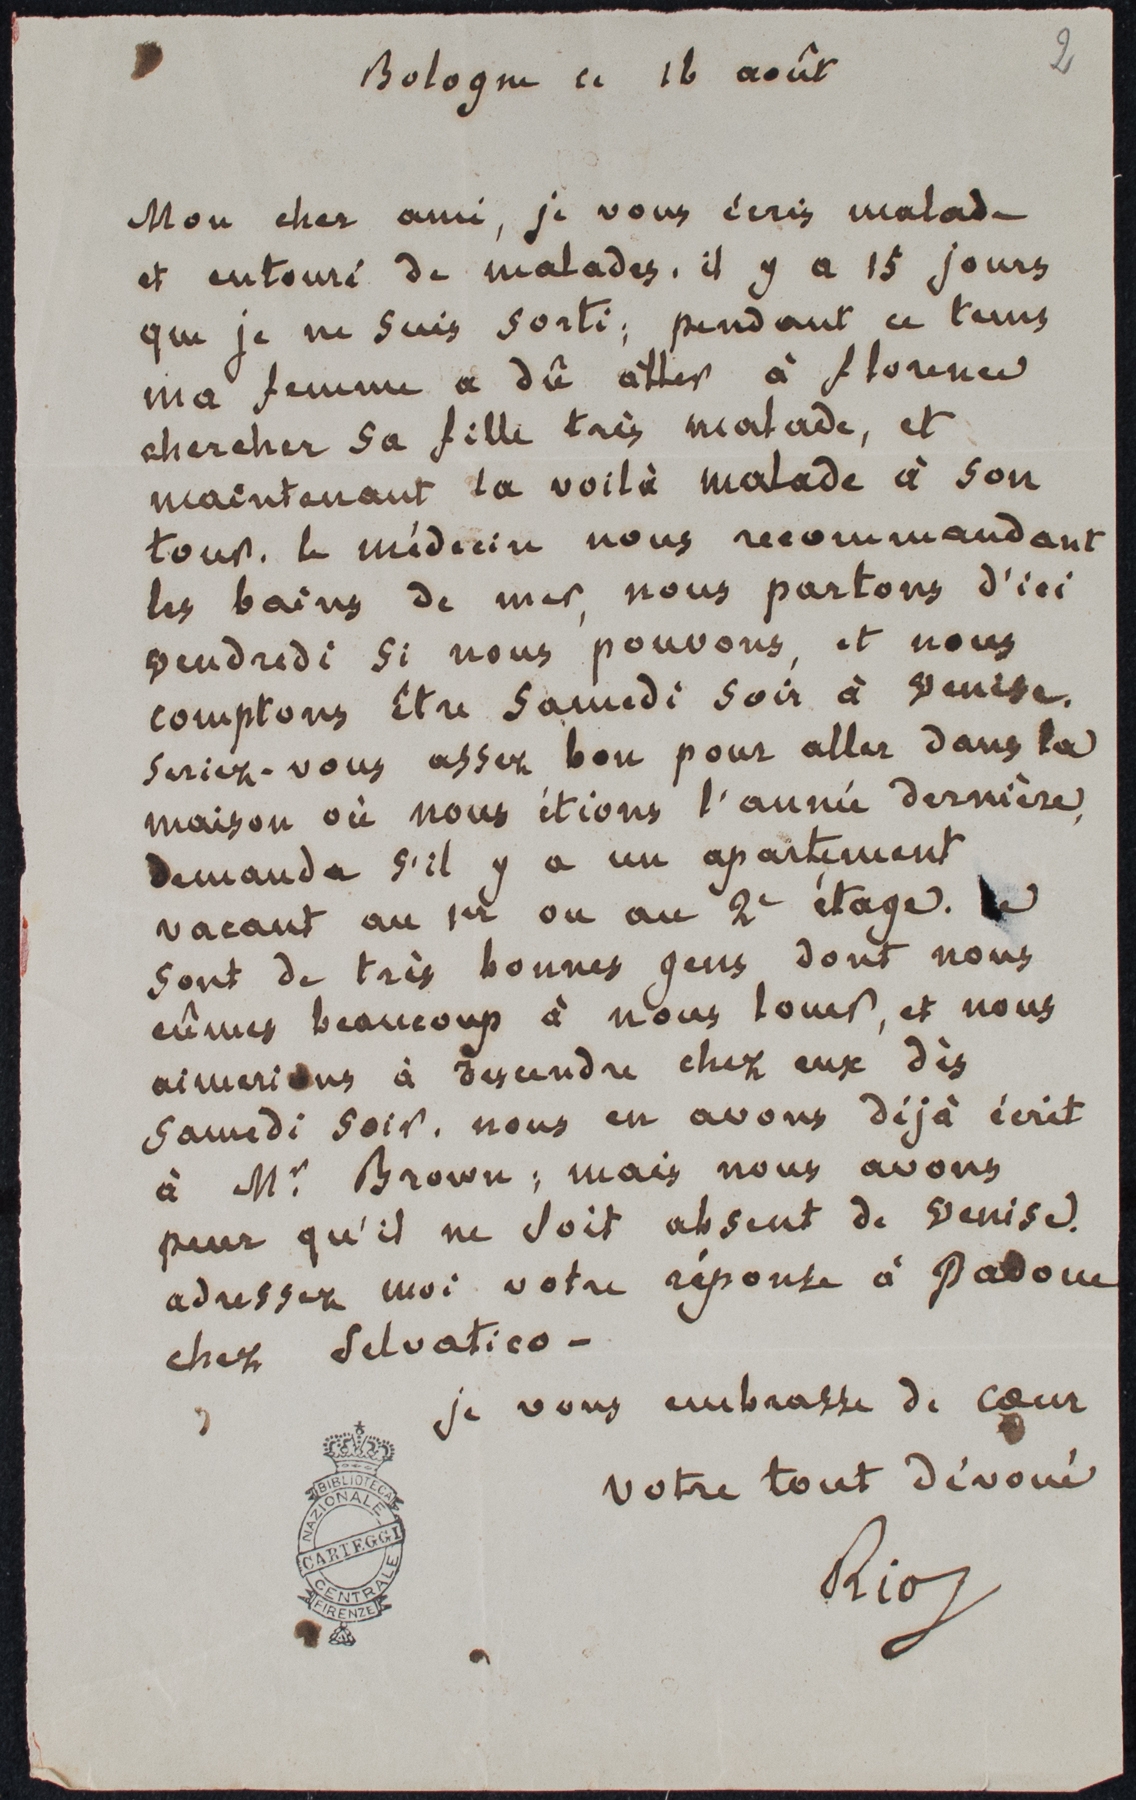 2
Bologne ce 16 août
Mon cher ami, je vous écris malade
et entouré de malades. il y a 15 jours
que je ne suis sorti; pendant ce tems
ma femme a dû aller à florence
chercher sa fille très malade, et
maintenant la voilà malade à son
tour. le médecin nous recommandant
les bains de mer, nous partons d'ici
vendredi si nous pouvons, et nous
comptons être samedi soir à venise.
seriez-vous assez bon pour aller dans la
maison où nous étions l'année dernière,
demander s'il y a un apartement
vacant au 1er ou au 2e étage. Ce
sont de très bonnes gens dont nous
eûmes beaucoup à nous louer, et nous
aimerions à descendre chez eux dès
samedi soir. nous en avons déjà écrit
à Mr. Brown; mais nous avons
peur qu'il ne soit absent de venise.
adressez moi votre réponse à Padoue
chez Selvatico -
je vous embrasse de cœur
votre tout dévoué
Rio
BIBLIOTECA
NAZIONALE
CARTEGGI
CENTRALE
FIRENZE